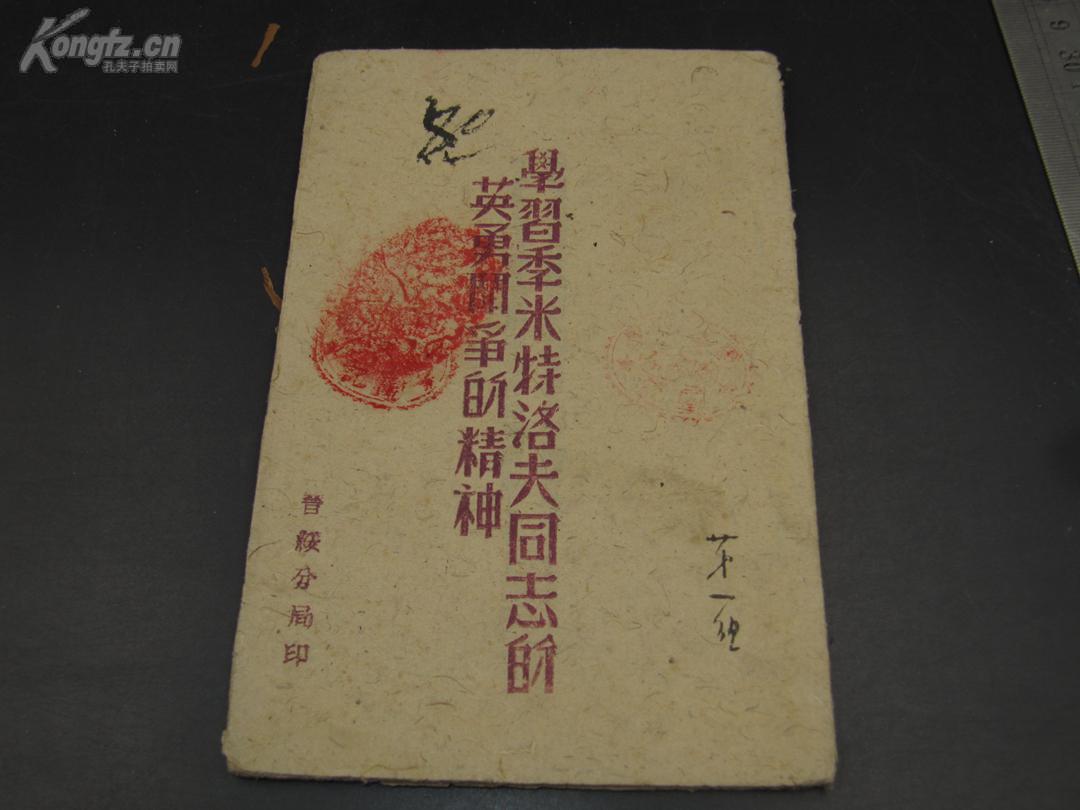 Kongfz.cn
孔夫子拍卖网
學習季米特洛夫同志的
英勇鬥爭的精神
晉綏分局印
第一組
9
30